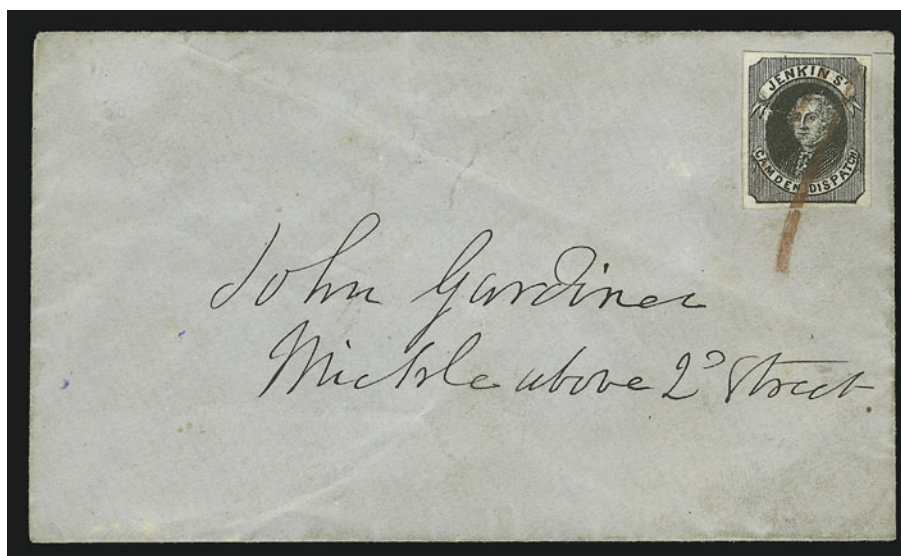 JENKINS'
CAMDEN DISPATCH
John Gardiner
Mickle above 2d Street